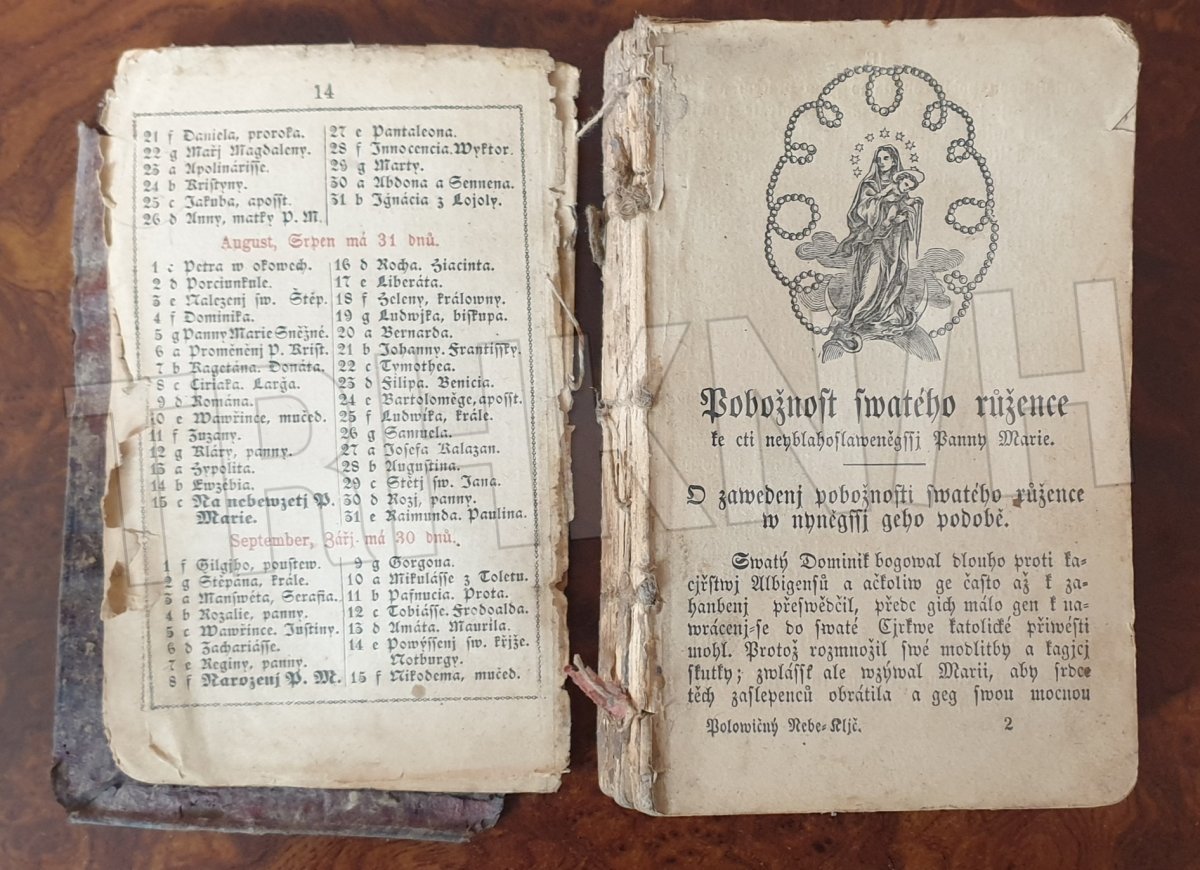 14
21 f Daniela, proroka.
22 g Mařj Magdaleny.
23 a Apolinárisse.
24 b Kristyny.
25 c Jakuba, aposst.
26 d Anny, matky P. M.
27 e Pantaleona.
28 f Innocencia. Wyktor.
29 g Marty.
30 a Abdona a Sennena.
31 b Ignácia z Lojoly.
August, Srpen má 31 dnů.
1 c Petra w okowech.
2 d Porciunkule.
3 e Nalezenj sw. Štěp.
4 f Dominika.
5 g Panny Marie Sněžné.
6 a Proměněnj P. Krist.
7 b Kagetána. Donáta.
8 c Ciriaka. Larga.
9 d Romána.
10 e Wawřince, mučed.
11 f Zuzany.
12 g Kláry, panny.
13 a Hypolita.
14 b Ewzébia.
15 c Na nebewzetj P.
Marie.
16 d Rocha. Hiacinta.
17 e Liberáta.
18 f Heleny, králowny.
19 g Ludwjka, biskupa.
20 a Bernarda.
21 b Johanny. Frantissky.
22 c Tymothea.
23 d Filipa. Benicia.
24 e Bartoloměge, aposst.
25 f Ludwika, krále.
26 g Samuela.
27 a Josefa Kalazan.
28 b Augustina.
29 c Stětj sw. Jana.
30 d Rozj, panny.
31 e Raimunda. Paulina.
September, Zářj má 30 dnů.
1 f Gilgjho, poustew.
2 g Štěpána, krále.
3 a Manswéta, Serafia.
4 b Rozalie, panny.
5 c Wawřince. Justiny.
6 d Zachariásse.
7 e Reginy, panny.
8 f Narozenj P. M.
9 g Gorgona.
10 a Mikulásse z Toletu.
11 b Pafnucia. Prota.
12 c Tobiásse. Frodoalda.
13 d Amáta. Maurila.
14 e Powýssenj sw. křjže.
Notburgy.
15 f Nikodema, mučed.
Pobožnost swatého růžence
ke cti neyblahoslaweněgssj Panny Marie.
O zawedenj pobožnosti swatého růžence
w nyněgssj geho podobě.
Swatý Dominik bogowal dlouho proti ka-
cjřstwj Albigensů a ačkoliw ge často až k za-
hanbenj přeswědčil, předc gich málo gen k na-
wrácenj-se do swaté Cjrkwe katolické přiwésti
mohl. Protož rozmnožil swé modlitby a kagjcj
skutky; zwlásst ale wzýwal Marii, aby srdce
těch zaslepenců obrátila a geg swou mocnou
Polowičný Nebe-Kljč.
2
TRHKNIH